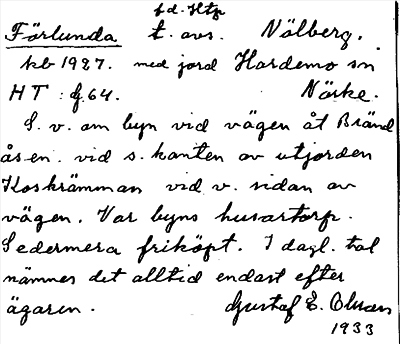 f.d. Htp
Förlunda t. avs. Nälberg.
kb 1927. med jord Hardemo sn
HT : f. 64. Närke.
S. v. om byn vid vägen åt Bränd
åsen. vid s. kanten av utjorden
Koskrämman vid v. sidan av
vägen. Var byns husartorp.
Sedermera friköpt. I dagl. tal
nämnes det alltid endast efter
ägaren. Gustaf E. Olsson
1933